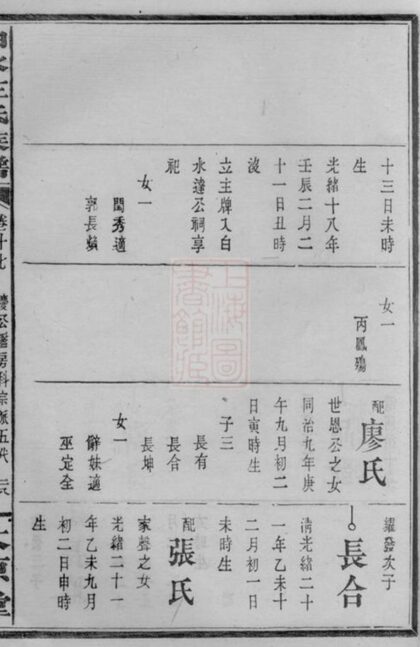 十三日未時
生
光緒十八年
壬辰二月二
十一日丑時
歿
立主牌入白
水邊公祠享
祀
女一
閏秀適
郭長
女一
丙鳳殤
配廖氏
世恩公之女
同治九年庚
午九月初二
日寅時生
子三
長有
長合
長坤
女一
妹適
巫定全
耀發次子
長合
清光緒二十
一年乙未十
二月初一日
未時生
配張氏
家聲之女
光緒二十一
年乙未九月
初二日申時
生
氏族譜
卷十九
公房
上海圖書館藏